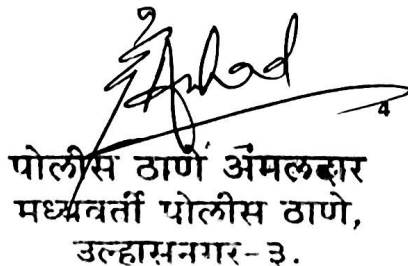 4
पोलीस ठाणे अंमलदार
मध्यवर्ती पोलीस ठाणे,
उल्हासनगर-३.